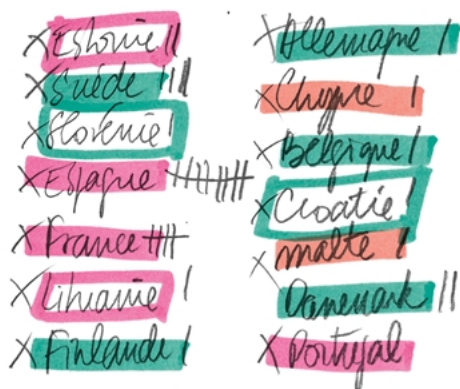 X Estonie II
X Suède III
X Slovénie I
X Espagne
X France
X Lithuanie I
X Finlande I
X Allemagne I
X Chypre I
X Belgique I
X Croatie I
X Malte I
Danemark II
X Portugal